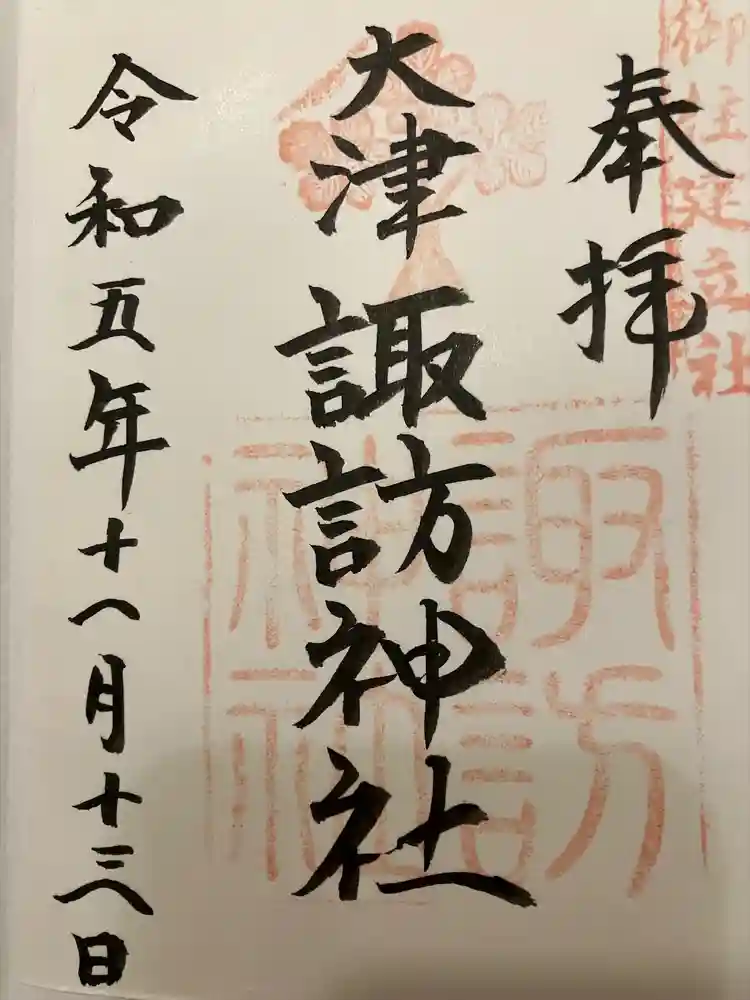 御柱建立社
奉拝
大津諏訪神社
諏訪
神社
令和五年十一月十三日